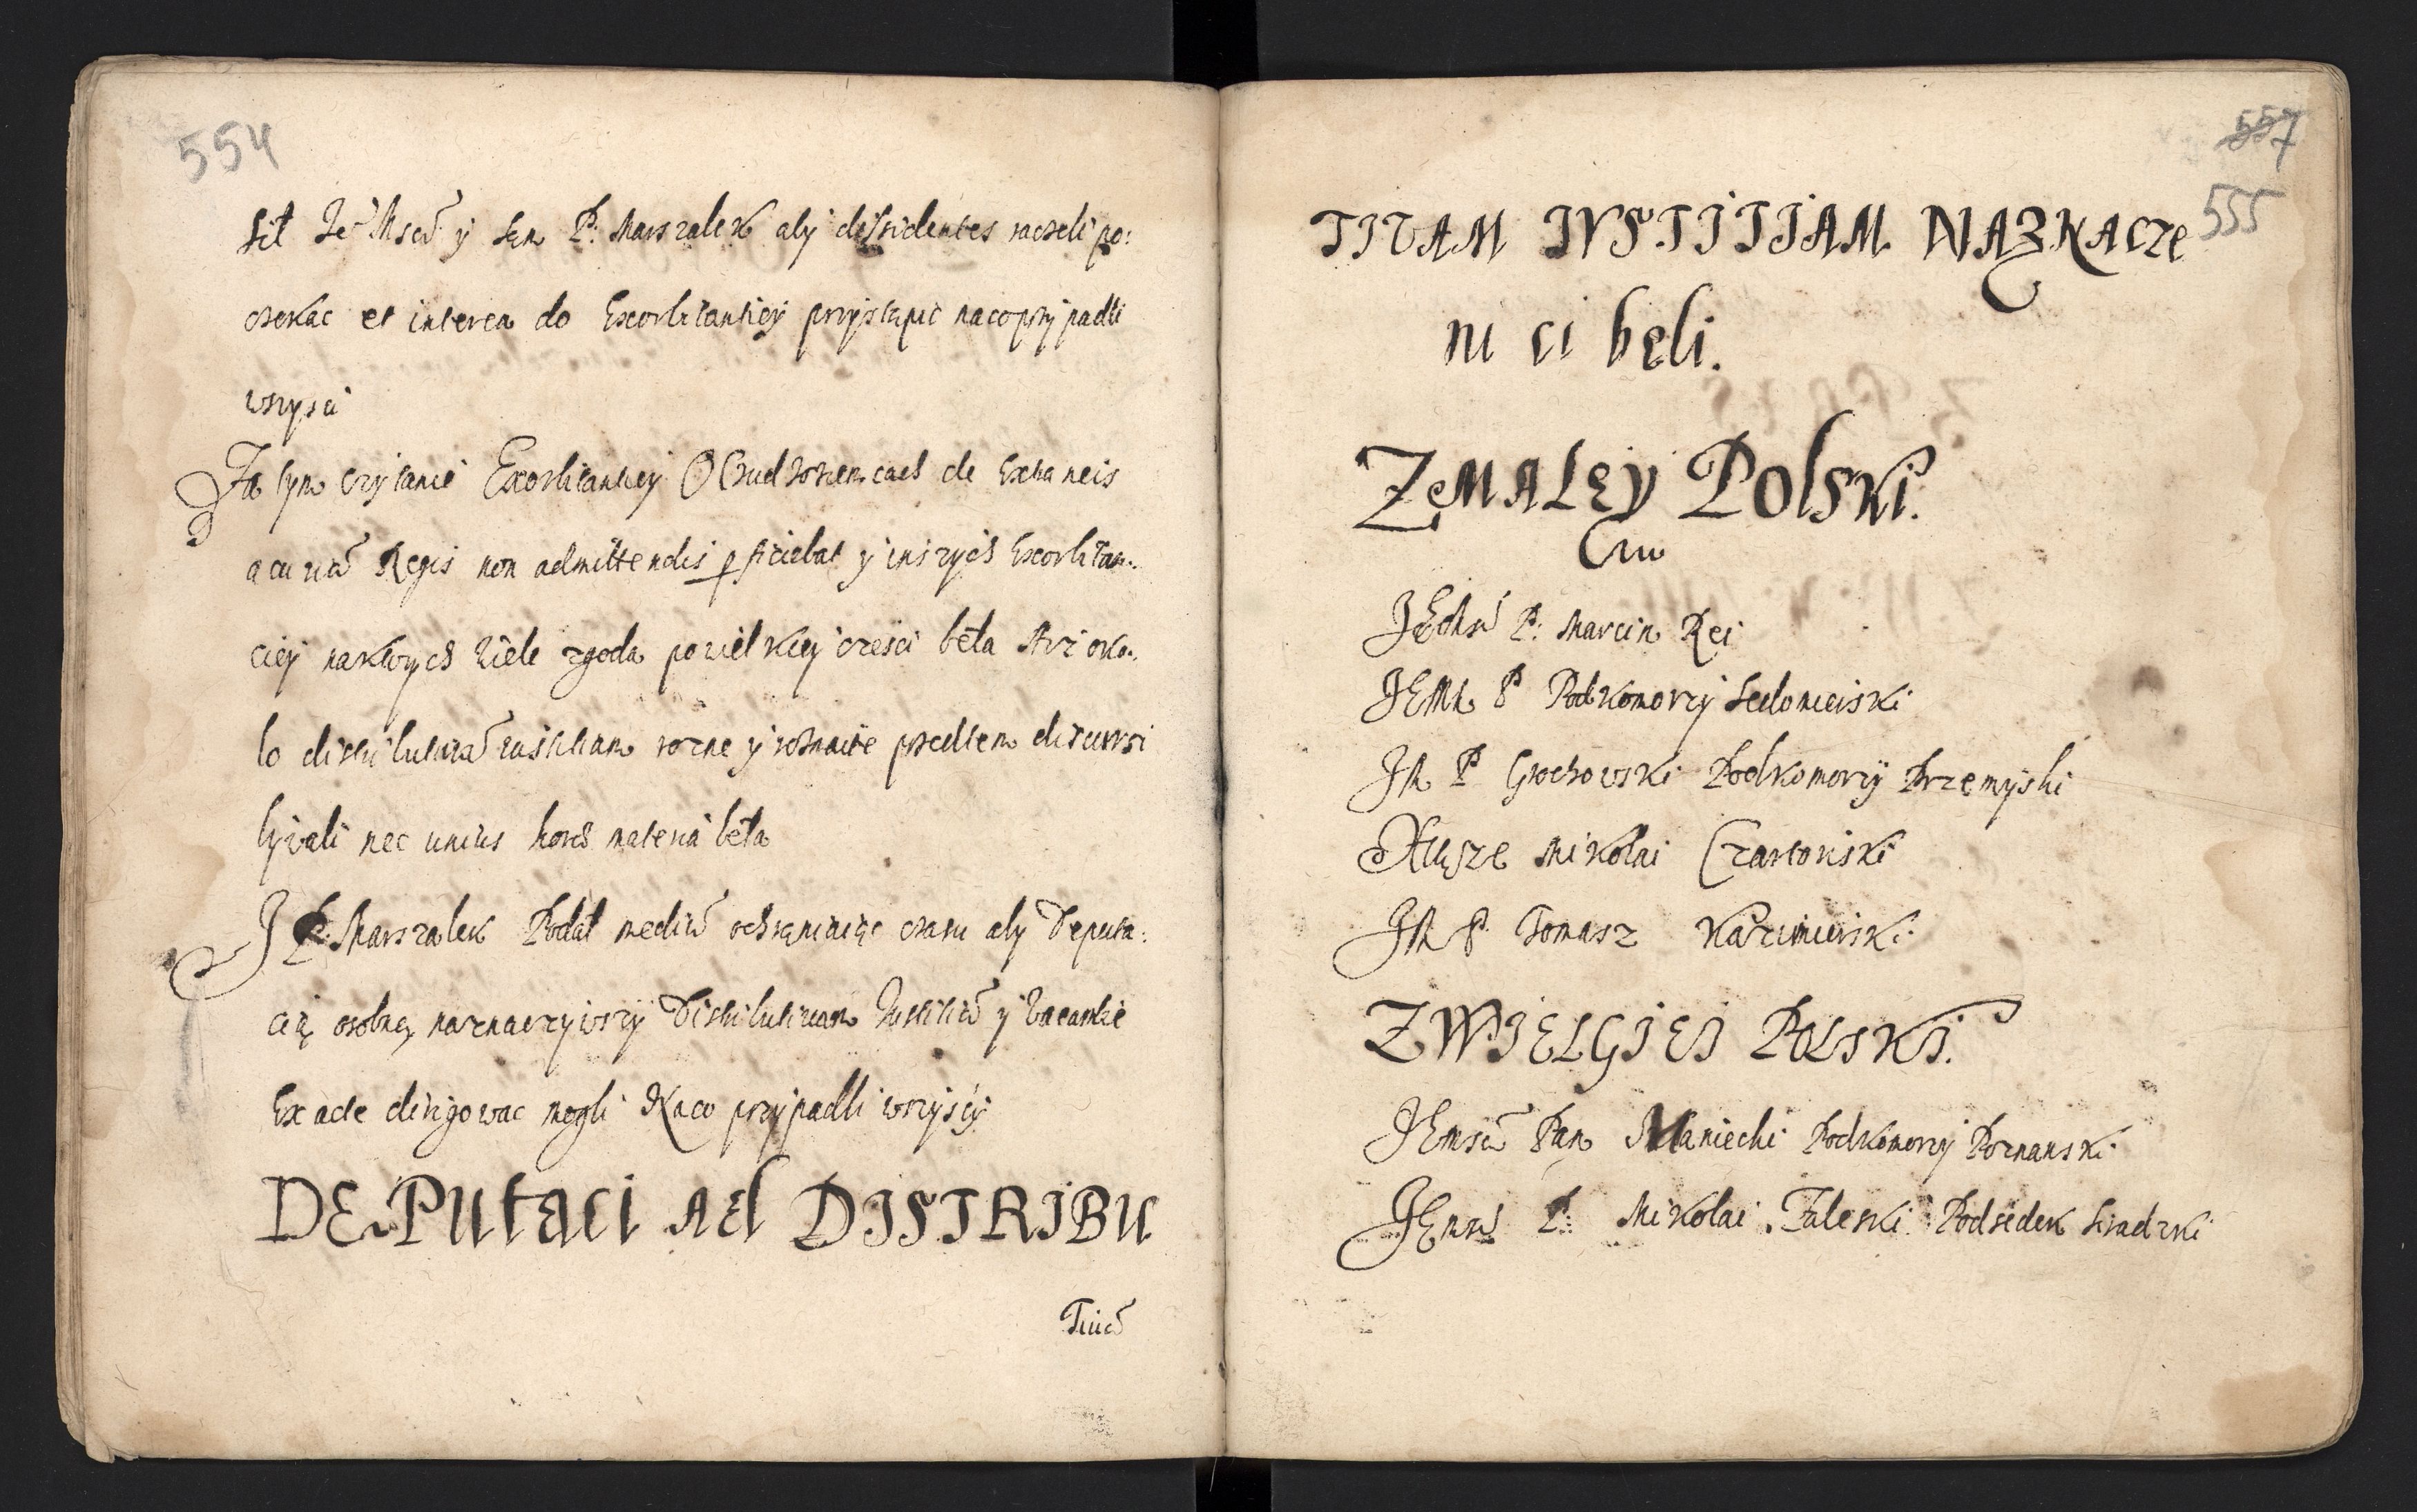 554
sił Je Mścź y sam P: Marszalek aby dissidentes raczeli po:
czekac et interea do Exorbitantiey przystąpić naco przypadli
wszysci
Za tym czytanie Exorbitantiey O Cudzoziemcach de Extraneis
a curia Regis non admittendis proficiebat y inszych Exorbitan:
ciey naktorych wiele zgoda po wielkiey czesci beła Arz oko:
lo distributiva iustitiam rozne y rozmaite przedtem discursi
bywali nec unius horae materia beła
J P. Marszalek Podał mediu ochraniaiąc czasu aby Deputa:
cią osobną naznaczywszy Distributivam Iustitia y Vacantie
Exacte dirigowac mogli Naco przypadli wszyscy
DEPUtaci ad DISTRIBU
Tiua
557
555
TIVAM IVSTITIAM NAZNACZE
ni ci beli.
Z MALEY POlSKi.
JEoMsć P: Marcin Rei
JEMM P Podkomorzy Sedomirski
JM P Grochowski Podkomorzy Przemyski
Xiąze Mikolai Czartoriski
JM P. Tomasz Kazimierski
Z WIELGIEI POLSKI.
JEmsć Pan Maniecki Podkomorzy Poznanski
JEmsć P: Mikolai Zaleski Podsedek Siradzki